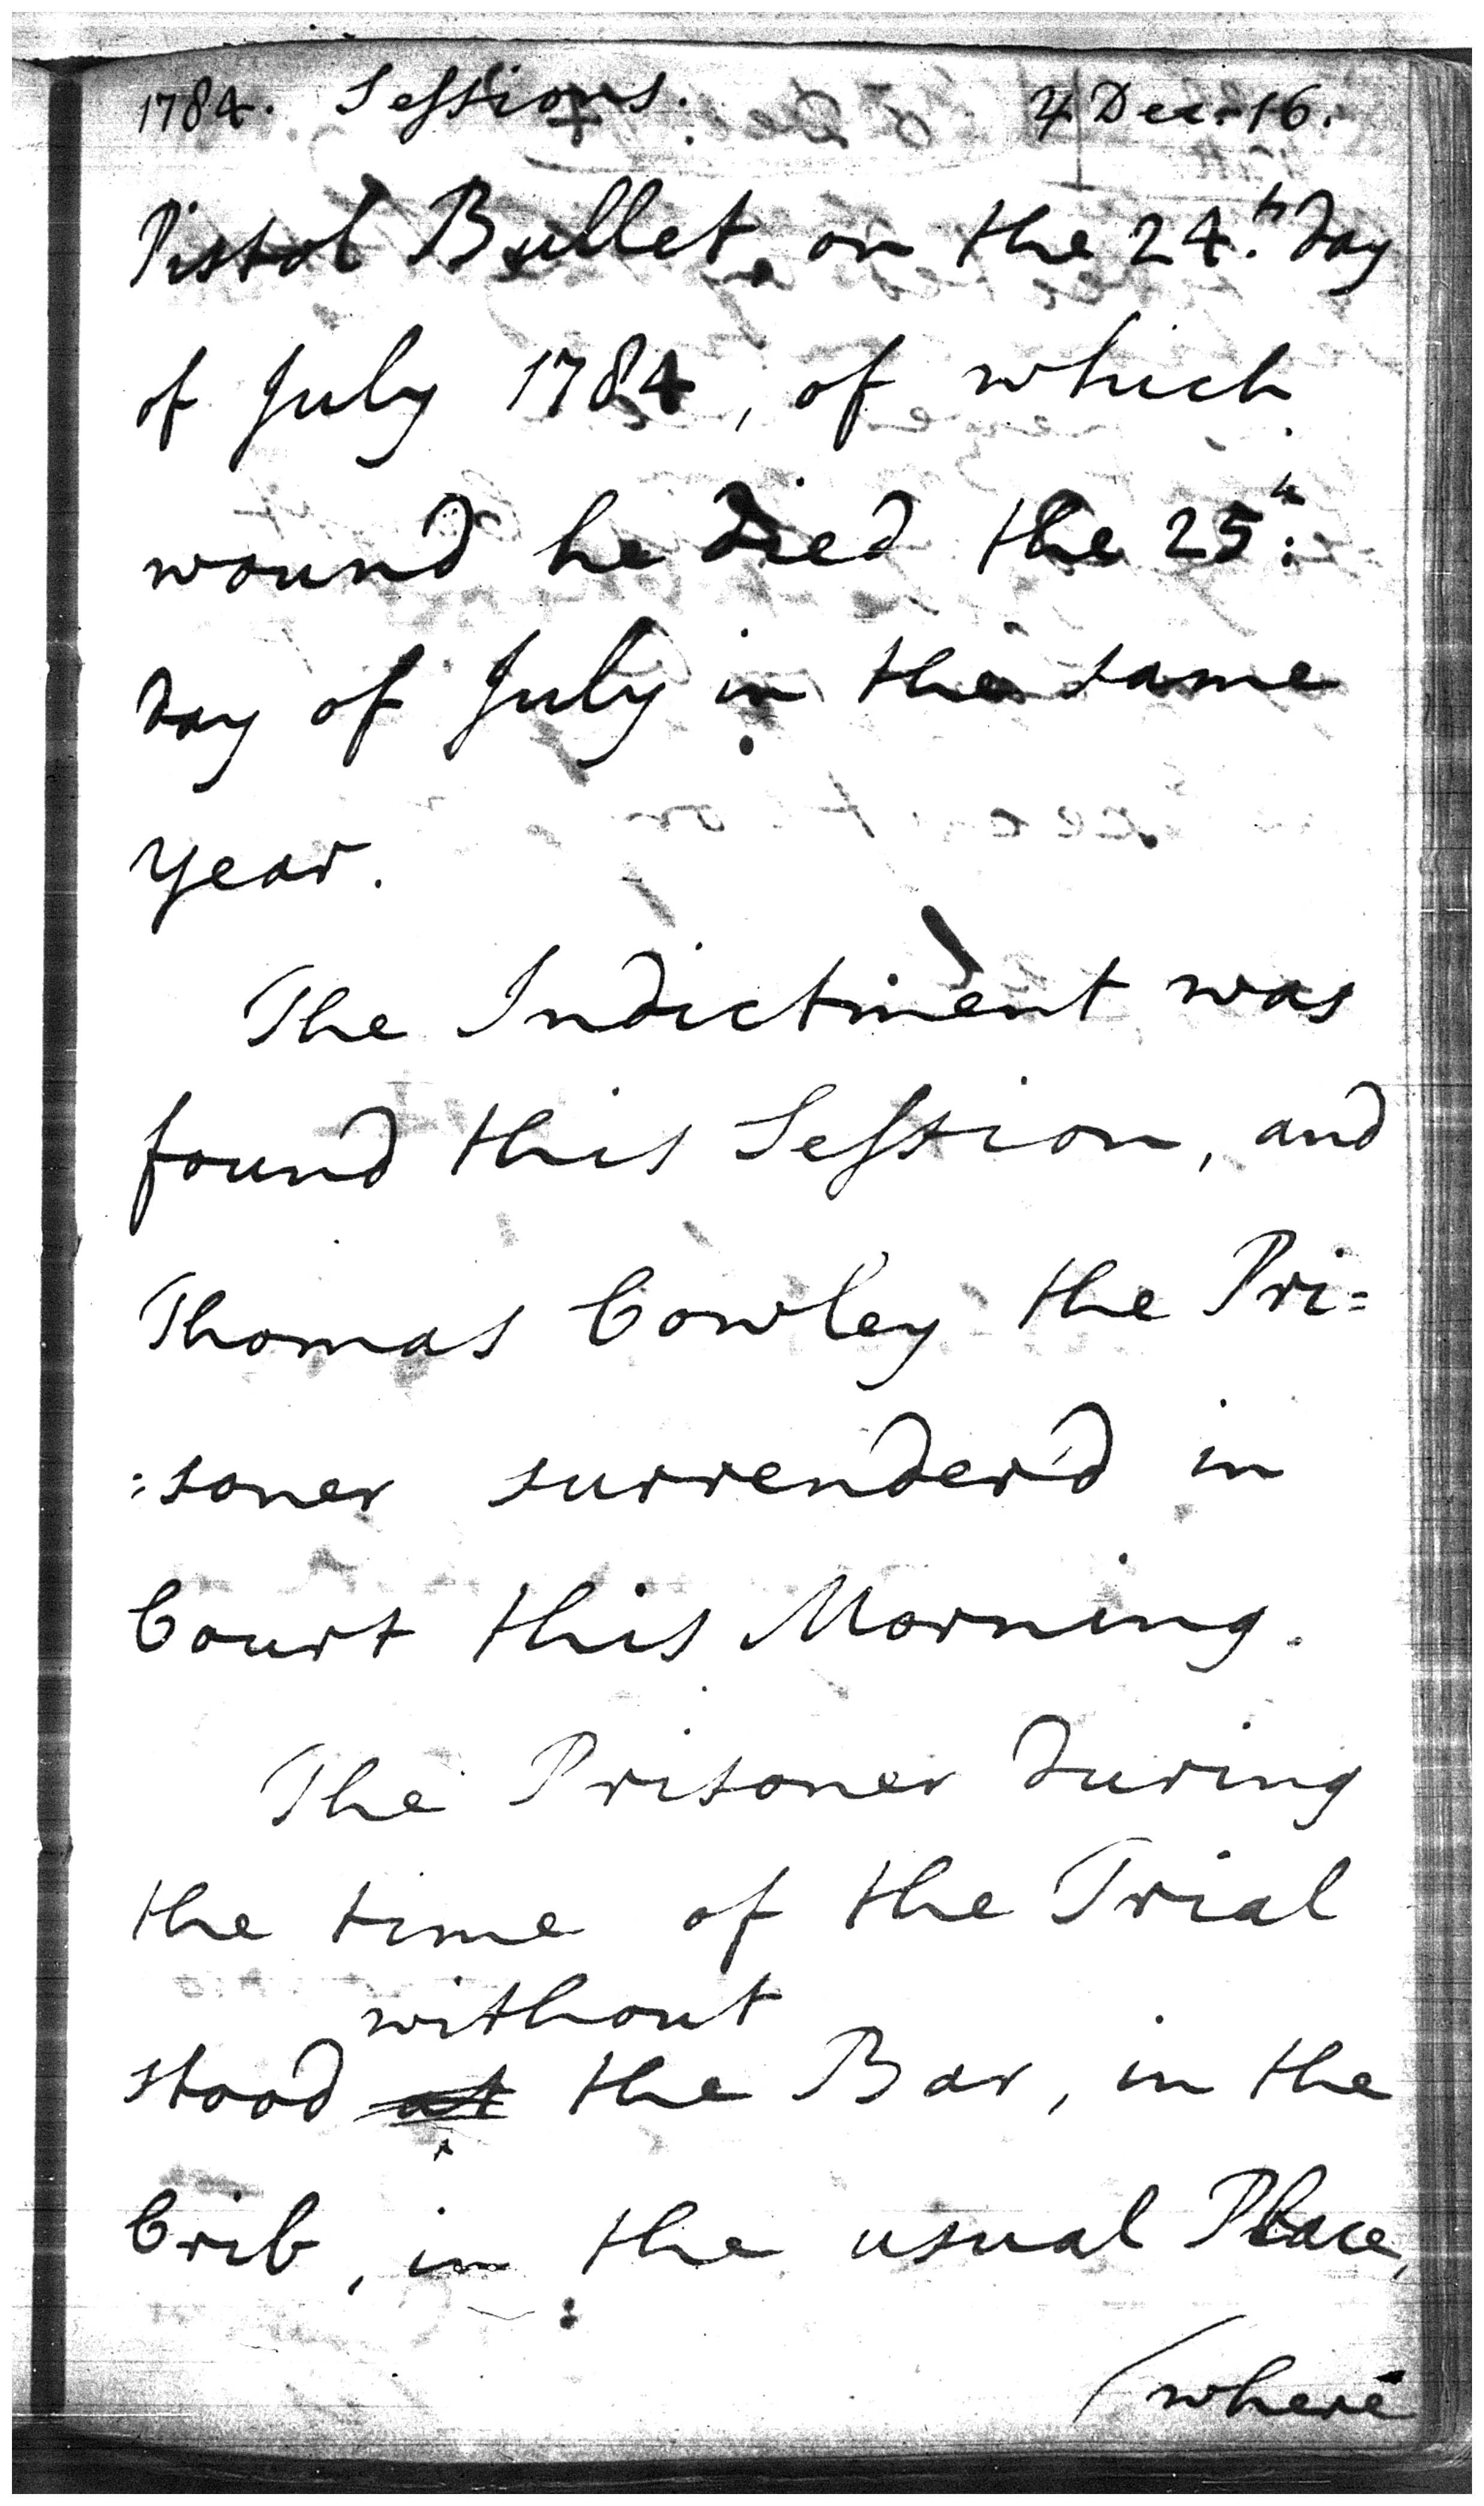 1784. Sessions. ♃ Dec. 16.
Pistol Bullet, on the 24.th day
of July 1784, of which
wound he died the 25.th
day of July in the same
year.
The Indictment was
found this Session, and
Thomas Cowley the Pri=
:soner surrender'd in
Court this Morning.
The Prisoner during
the time of the Trial
without
stood at the Bar, in the
Crib, in the usual Place,
(where